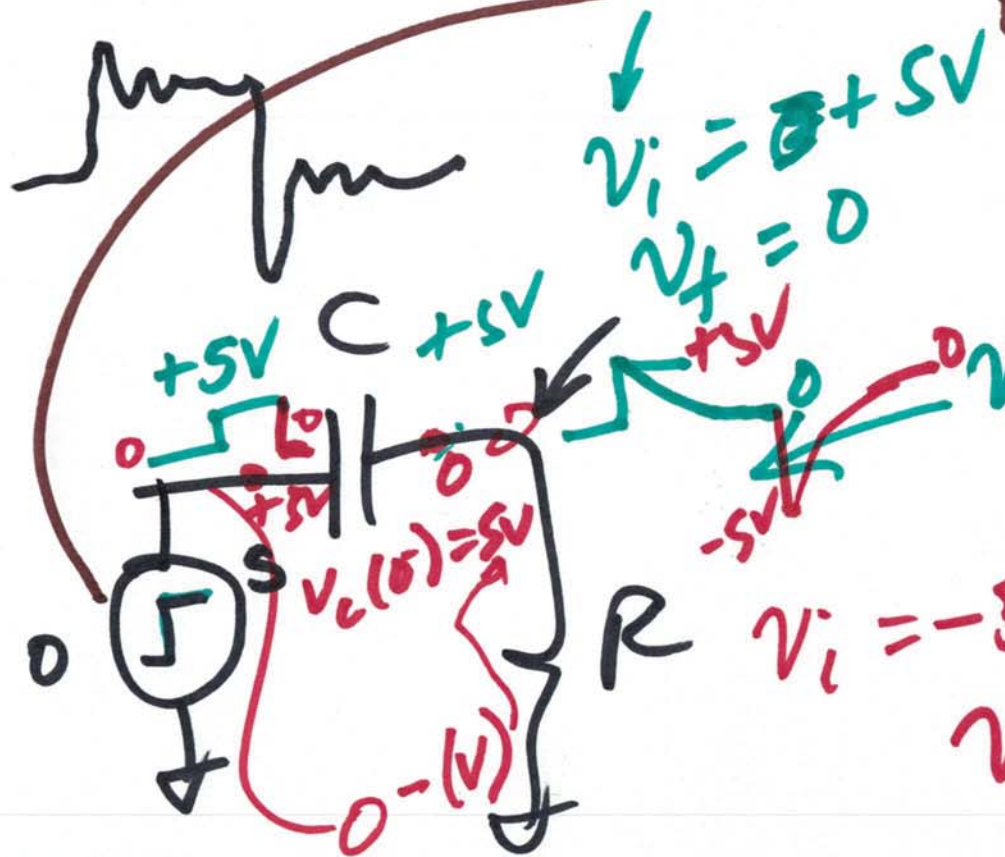 vᵢ = + 5V
v_f = 0
C
+5V
+5V
+5V
0
0
0
0
+5V
0
-5V
S
V_c(0⁻)=5V
0
R
vᵢ = -
0⁻(V)